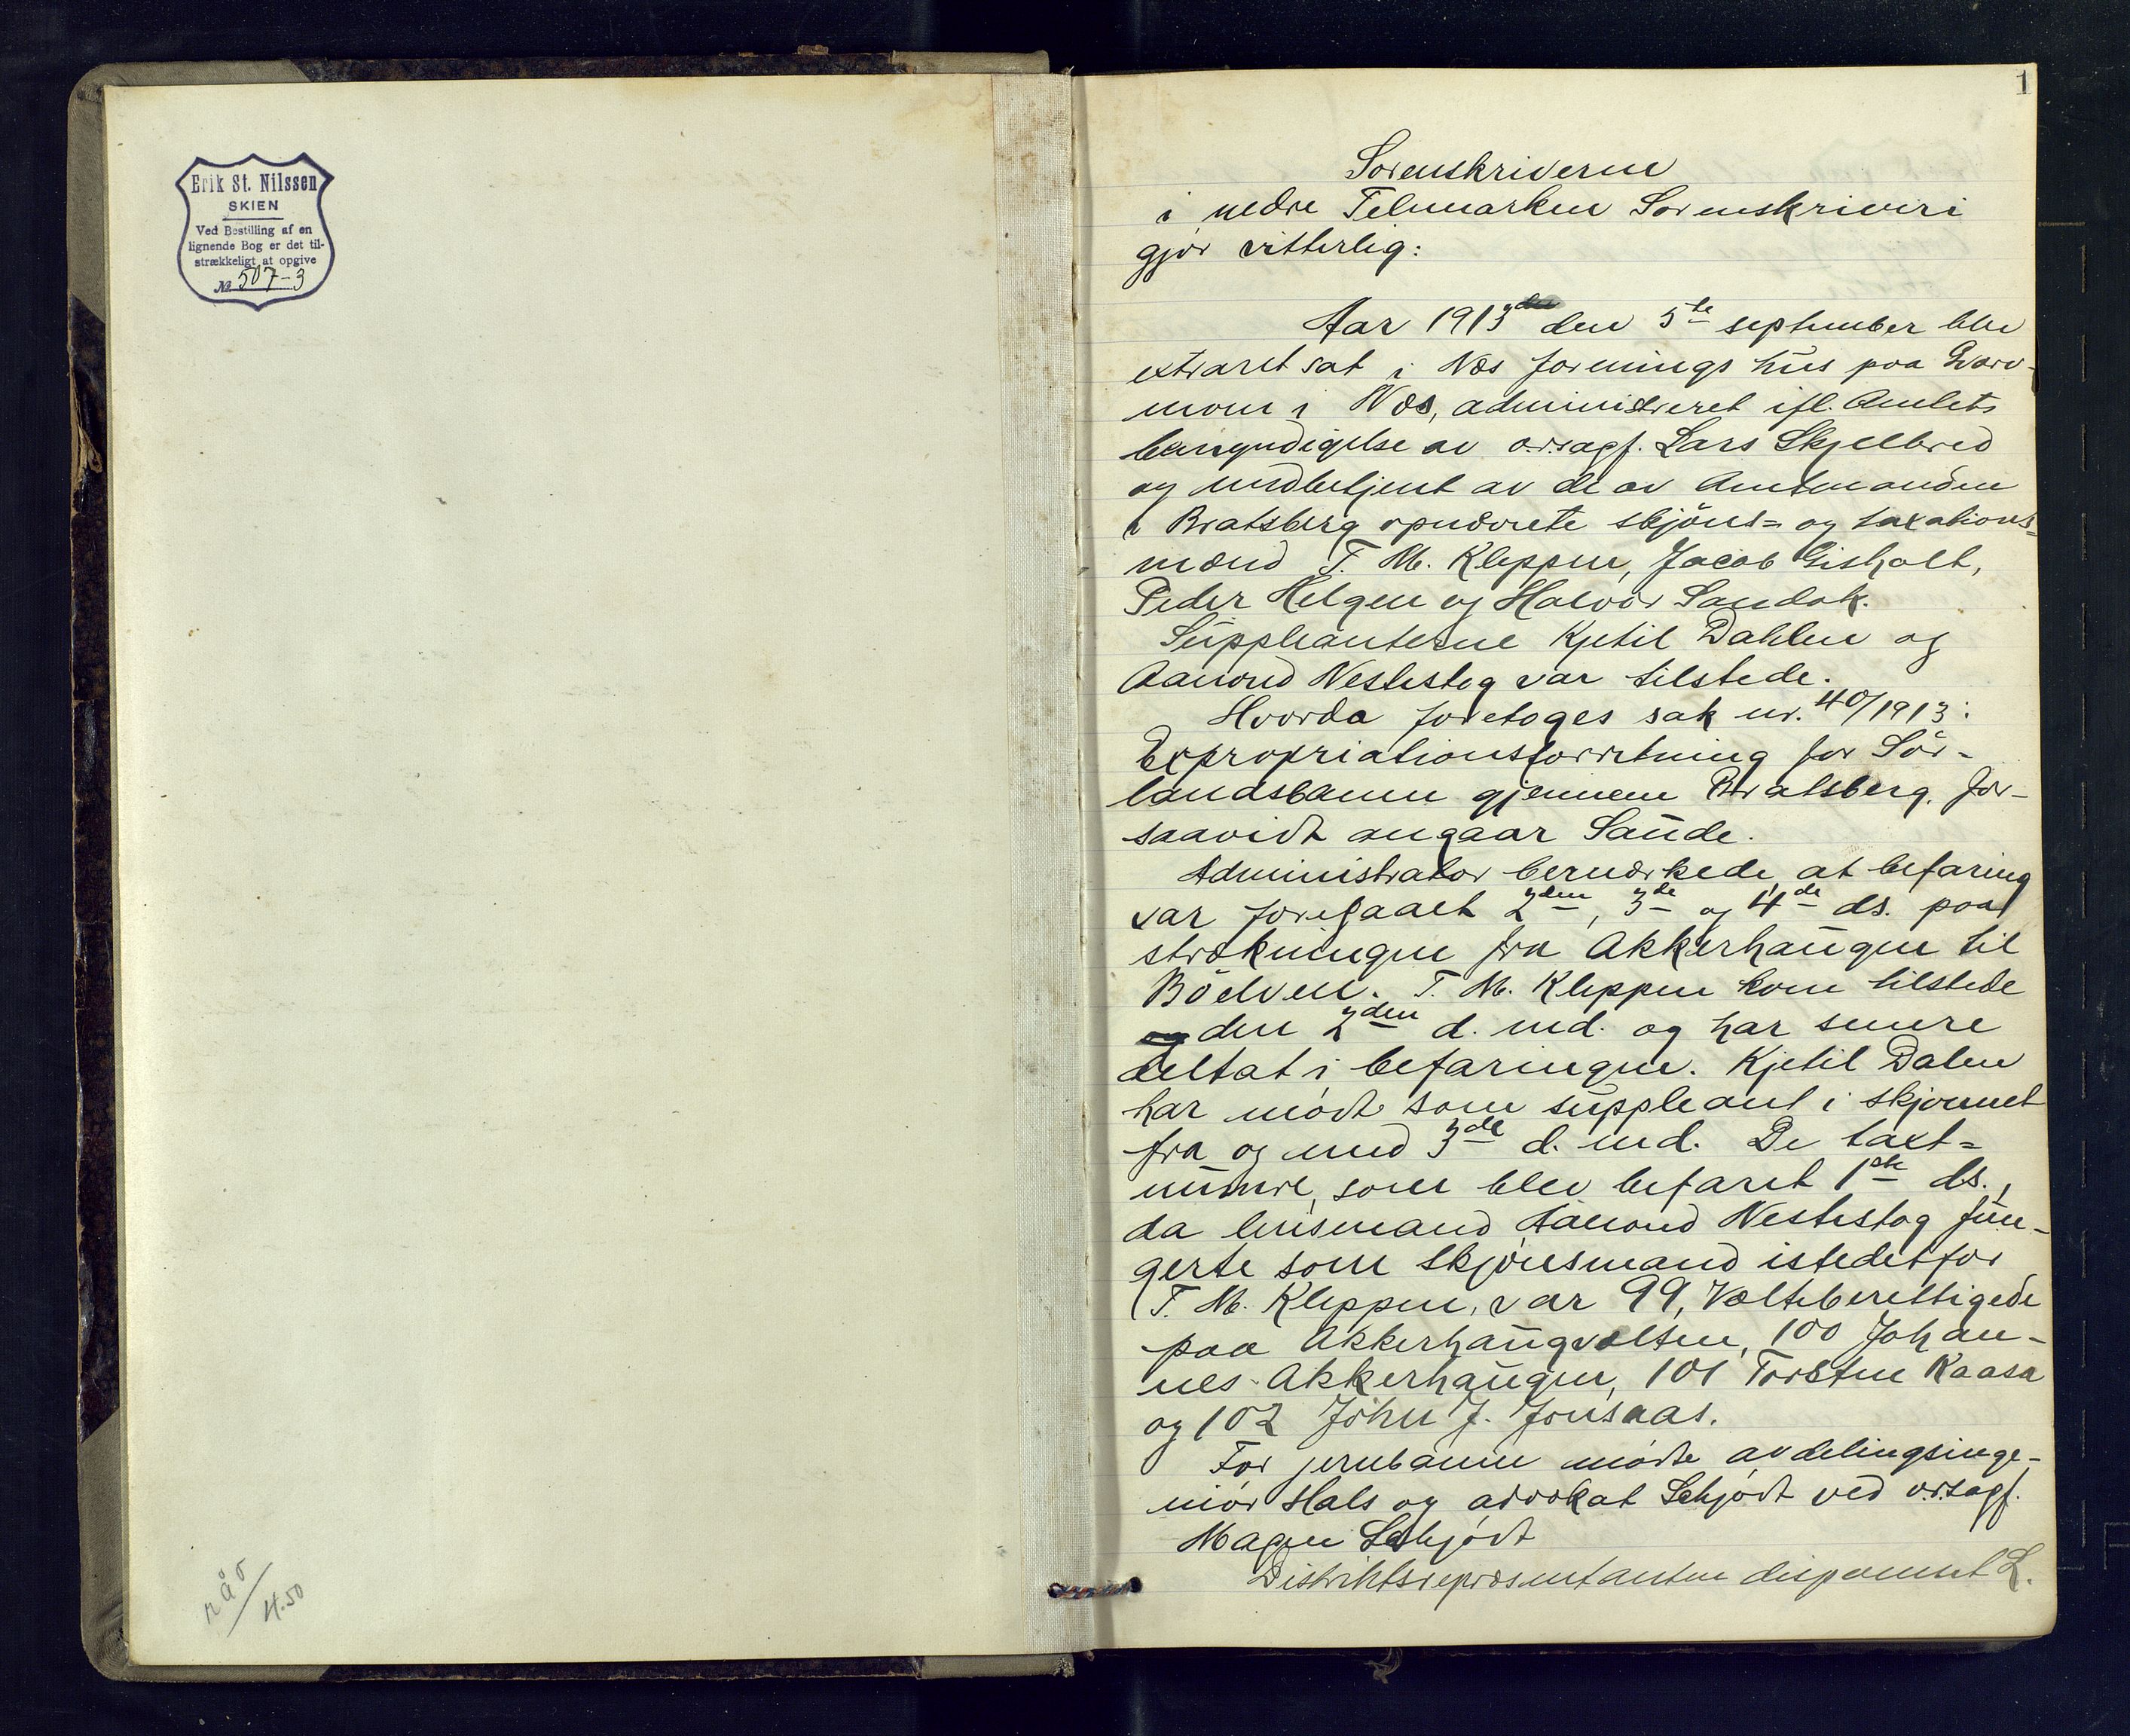 Erik St. Nilssen
SKIEN
Ved Bestilling af en
lignende Bog er det til-
strækkeligt at opgive
№ 507-3
4.50
1
Sorenskriveren
i nedre Telemarken Sorenskriveri
gjør vitterlig:
Aar 1913 den 5te september blev
extraret sat i Nes forenings hus paa Gvarv-
moen i Nes, administreret ifl. Amtets
bemyndigelse av o.r.sagf. Lars Skjelbred
og medbetjent av de av Amtmanden
i Bratsberg opnævnte skjöns= og taxations=
mænd T. M. Kleppen, Jacob Gisholt,
Peder Helgen og Halvor Sandok.
Suppleanterne Kjetil Dahlen og
Aamond Nestestog var tilstede.
Hvorda foretoges sak nr. 40/1913:
Expropriationsforretning for Sör-
landsbanen gjennem Bratsberg, for-
saavidt angaar Saude.
Administrator bemærkede, at befaring
var foregaaet 2den, 3de og 4de ds. paa
strækningen fra Akkerhaugen til
Böelven. T. M. Kleppen kom tilstede
den 2den d. md. og har senere
deltat i befaringen. Kjetil Dalen
har mødt som suppleant i skjønnet
fra og med 3de d. md. De taxt=
numre, som blev befaret 1ste ds.,
da lensmand Aamond Nestestog fun-
gerte som skjönsmand istedetfor
T. M. Kleppen, var 99, Volteberettigede
paa Akkerhaugvolten, 100 Johan-
nes Akkerhaugen, 101 Torsten Kaasa
og 102 John J. Jonsaas.
For jernbanen mødte avdelingsinge-
niör Hals og advokat Schjødt ved o.r.sagf.
Magen Schjødt
Distriktsrepræsentanten disponent L.